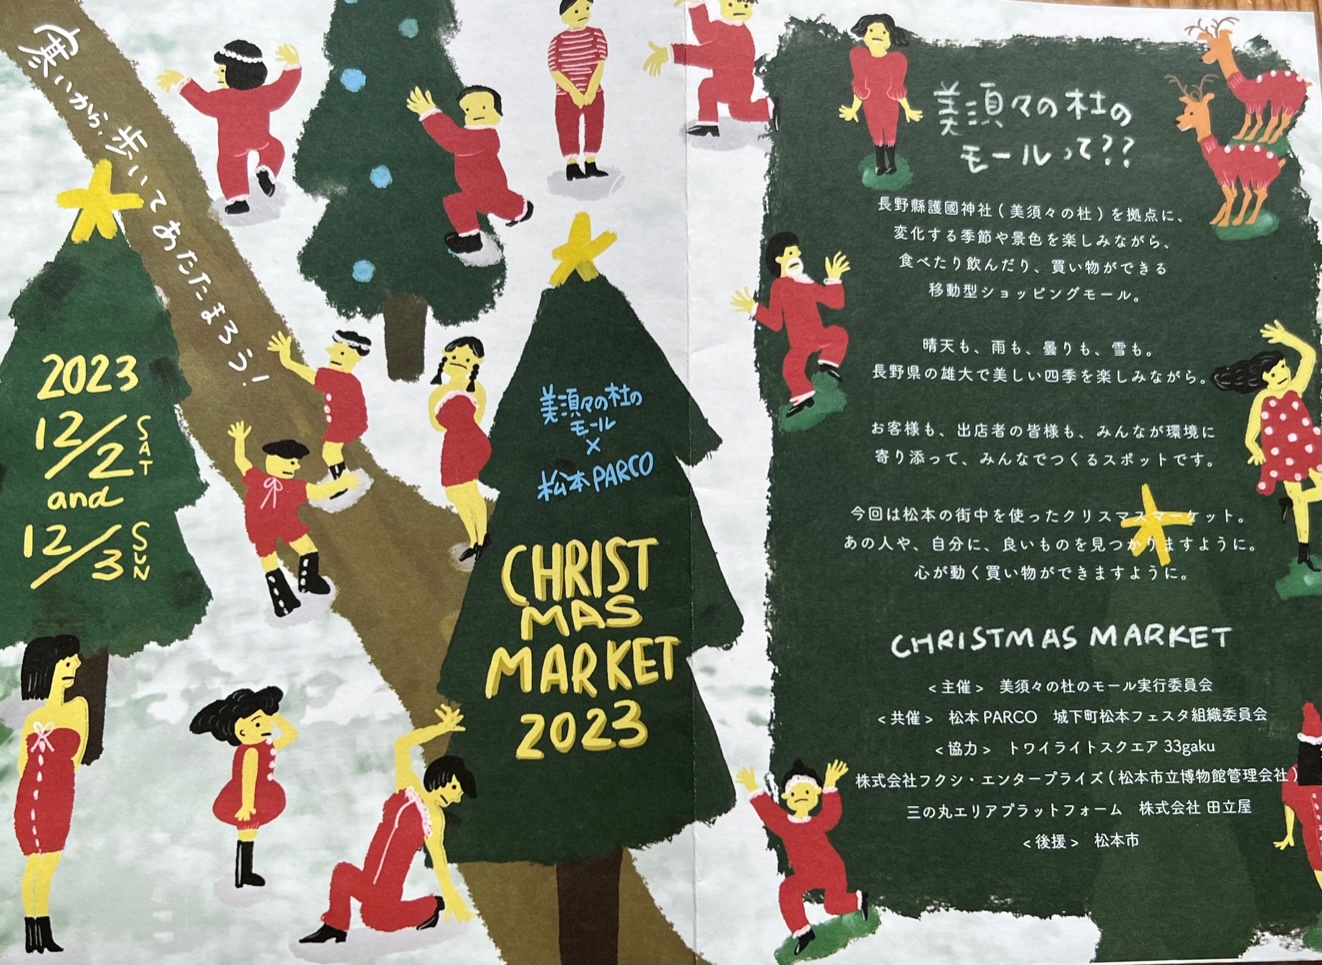 寒いから、歩いてあたたまろう！
2023
12/2 SAT
and
12/3 SUN
美須々の杜の
モール
×
松本PARCO
CHRIST
MAS
MARKET
2023
美須々の杜の
モールって??
長野縣護國神社（美須々の杜）を拠点に、
変化する季節や景色を楽しみながら、
食べたり飲んだり、買い物ができる
移動型ショッピングモール。
晴天も、雨も、曇りも、雪も。
長野県の雄大で美しい四季を楽しみながら。
お客様も、出店者の皆様も、みんなが環境に
寄り添って、みんなでつくるスポットです。
今回は松本の街中を使ったクリスマスマーケット。
あの人や、自分に、良いものを見つかりますように。
心が動く買い物ができますように。
CHRISTMAS MARKET
<主催> 美須々の杜のモール実行委員会
<共催> 松本PARCO 城下町松本フェスタ組織委員会
<協力> トワイライトスクエア 33gaku
株式会社フクシ・エンタープライズ（松本市立博物館管理会社）
三の丸エリアプラットフォーム 株式会社 田立屋
<後援> 松本市